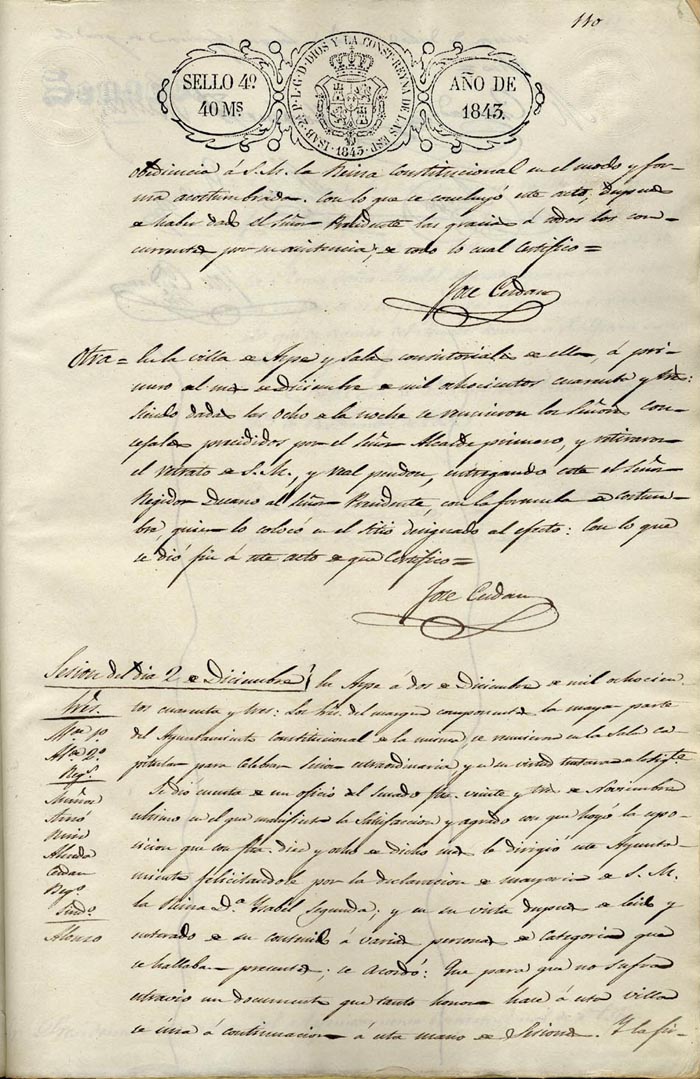 110
SELLO 4º
40 Mˢ
ISAB. 2ª P. L. G. D. DIOS Y LA CONST. REYNA DE LAS ESP.
1843.
AÑO DE
1843.
obediencia á S. M. la Reina Constitucional en el modo y for-
ma acostumbrada. Con lo que se concluyó este acto, despues
de haber dado el Señor Presidente las gracias á todos los con-
currentes por su asistencia, de todo lo cual Certifico =
Jose Cerdan
Otra = En la villa de Aspe y Sala consistoriales de ella, á pri-
mero del mes de Diciembre de mil ochocientos cuarenta y tres:
Siendo dadas las ocho de la noche se reunieron los Señores Con-
cejales precedidos por el Señor Alcalde primero, y retiraron
el retrato de S. M., y real pendon, entregando este el Señor
Regidor Decano al Señor Presidente, con la formula de costum-
bre quien lo colocó en el Sitio designado al efecto: Con lo que
se dió fin á este acto de que Certifico =
Jose Cerdan
Sesion del dia 2 de Diciembre
En Aspe á dos de Diciembre de mil ochocien-
tos cuarenta y tres: Los Sres. del margen componentes la mayor parte
del Ayuntamiento Constitucional de la misma se reunieron en la Sala ca-
pitular para celebrar Sesion extraordinaria y en su virtud trataron lo sigte.
Sres.
1º.
Alce 2º
Regs.
Muñoz
Almela
Cerdan
Sindº.
Alonso
Se dió cuenta de un oficio del Senado fha. veinte y tres de Noviembre
ultimo en el que manifiesta la Satisfaccion y agrado con que hoyó la espo-
sicion que con fha. diez y ocho de dicho mes le dirigió este Ayunta-
miento felicitandole por la declaracion de mayoria de S. M.
la Reina Dª. Ysabel Segunda; y en su vista despues de leido y
enterado de su contenido á varias personas de Categoria que
se hallaban presentes; se acordó: Que para que no sufra
estravio un documento que tanto honor hace á esta villa
se una á continuacion á esta mano de Sesiones. Y la fir-